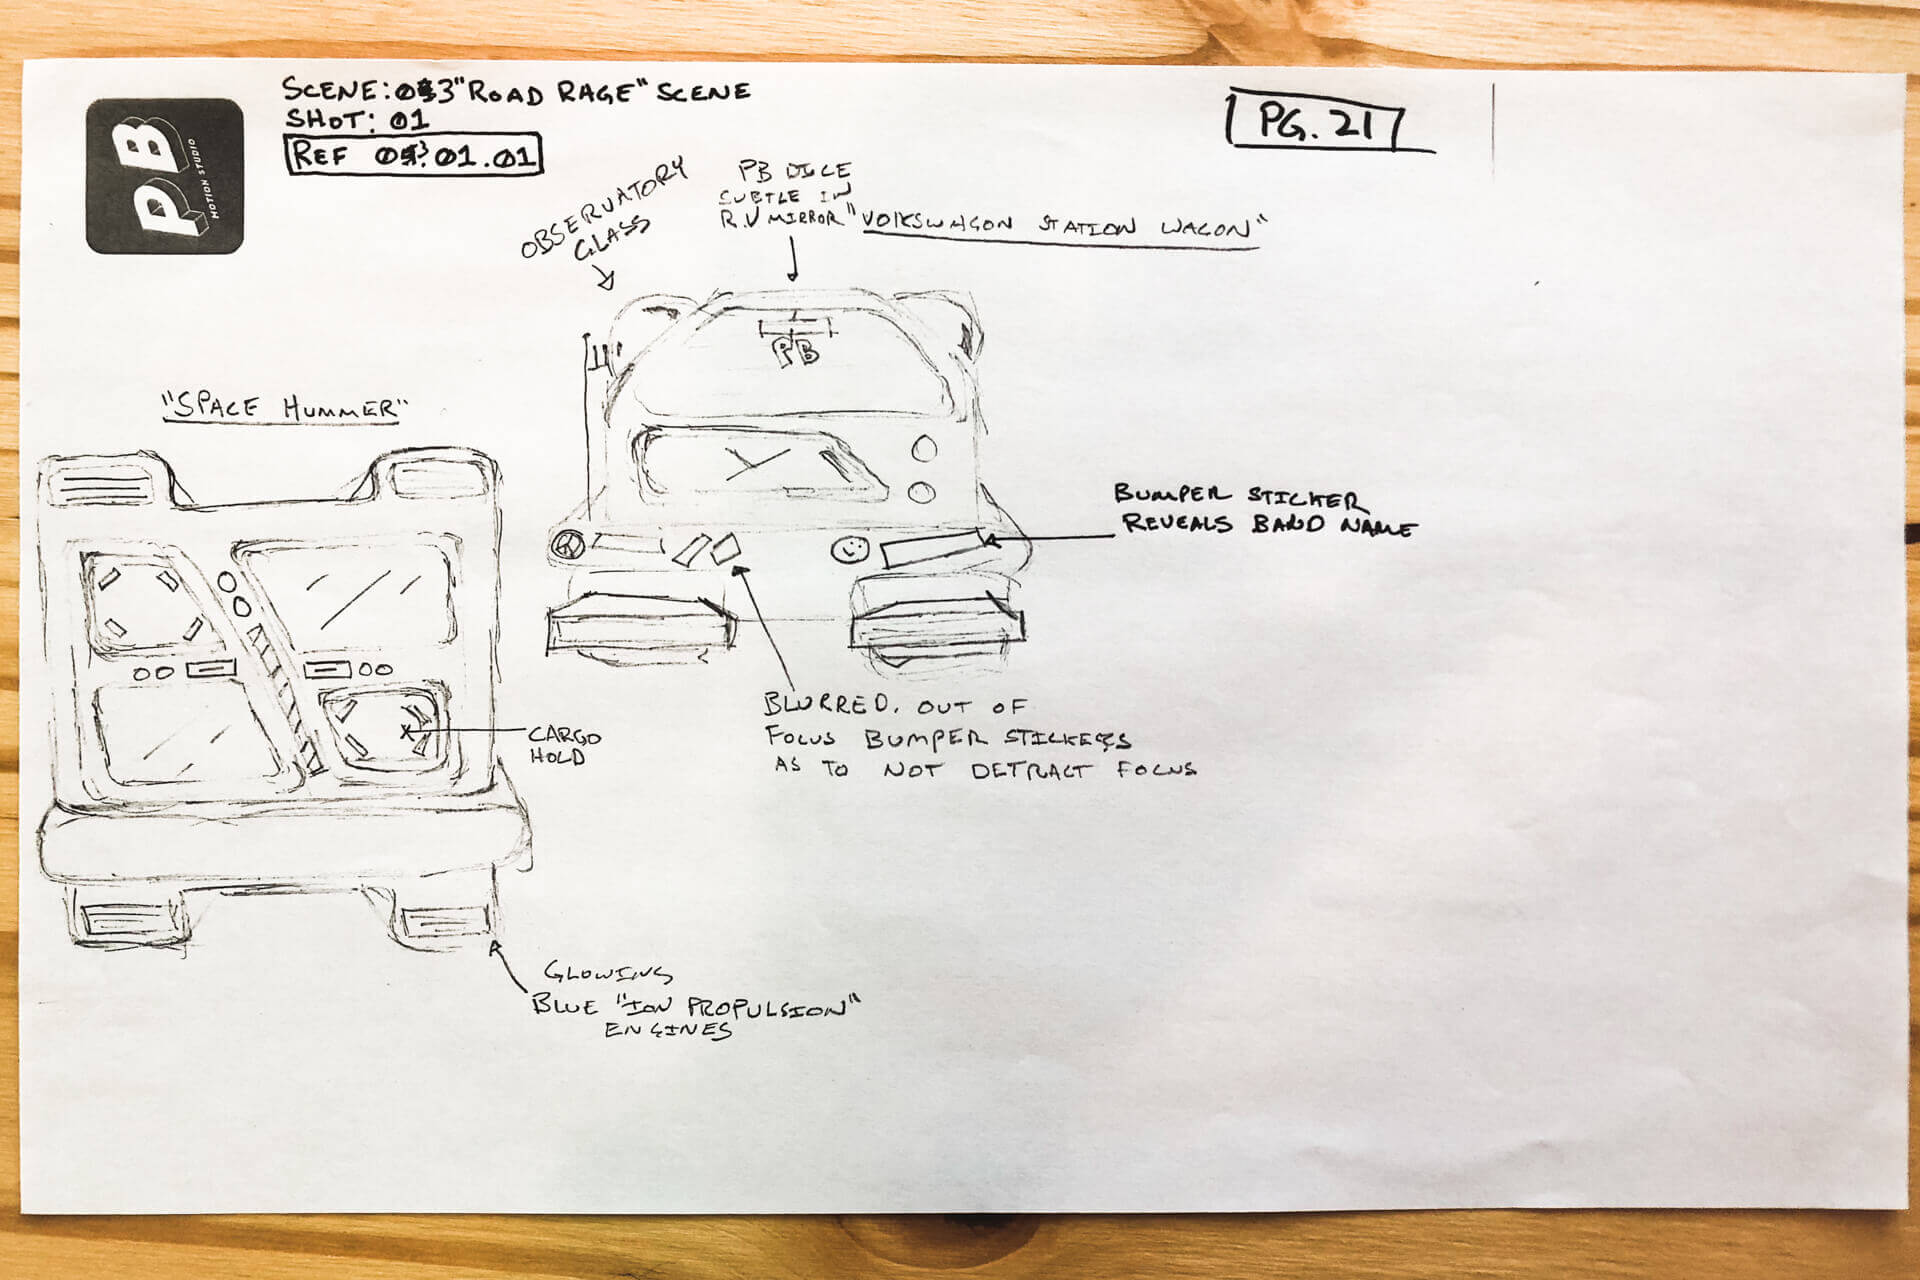 PB
MOTION STUDIO
SCENE: 03 "ROAD RAGE" SCENE
SHOT: 01
REF 03.01.01
PG. 21
OBSERVATORY
GLASS
PB DICE
SUBTLE IN
R.V MIRROR
"VOLKSWAGON STATION WAGON"
"SPACE HUMMER"
PB
BUMPER STICKER
REVEALS BAND NAME
BLURRED, OUT OF
FOCUS BUMPER STICKERS
AS TO NOT DETRACT FOCUS
CARGO
HOLD
GLOWING
BLUE "ION PROPULSION"
ENGINES